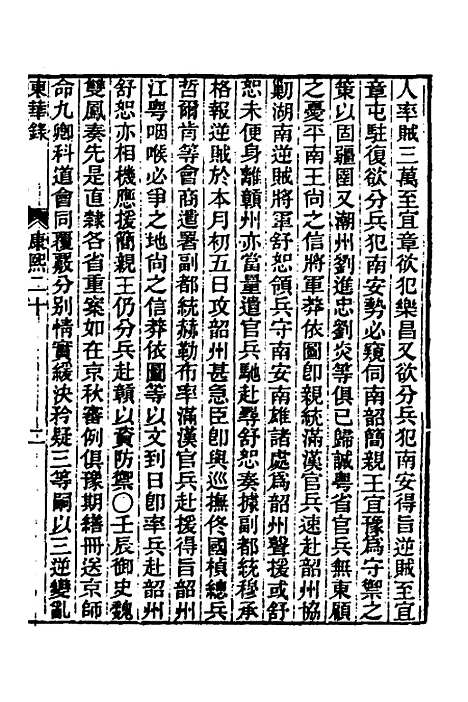 人率賊三萬至宜章欲犯樂昌又欲分兵犯南安得旨逆賊至宜
章屯駐復欲分兵犯南安勢必窺伺南韶簡親王宜豫爲守禦之
策以固疆圉又潮州劉進忠劉炎等俱已歸誠粵省官兵無東顧
之憂平南王尚之信將軍莽依圖卽親統滿漢官兵速赴韶州協
勦湖南逆賊將軍舒恕領兵守南安南雄諸處爲韶州聲援或舒
恕未便身離贛州亦當量遣官兵馳赴尋舒恕奏據副都統穆承
格報逆賊於本月初五日攻韶州甚急臣卽與巡撫佟國楨總兵
哲爾肯等會商遣署副都統赫勒布率滿漢官兵赴援得旨韶州
江粵咽喉必爭之地尚之信莽依圖等以文到日卽率兵赴韶州
舒恕亦相機應援簡親王仍分兵赴贛以資防禦〇壬辰御史魏
雙鳳奏先是直隸各省重案如在京秋審例俱豫期繕冊送京師
命九卿科道會同覆覈分別情實緩決矜疑三等嗣以三逆變亂
東華錄 康熙二十 二